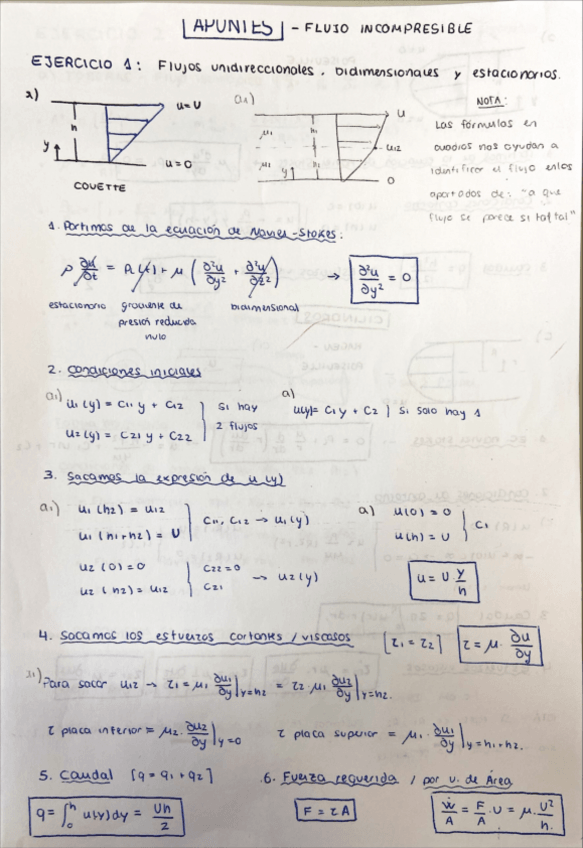 APUNTES - FLUJO INCOMPRESIBLE
EJERCICIO 1: Flujos unidireccionales, bidimensionales y estacionarios.
a)
u=U
h
y
u=0
COUETTE
a1)
u
μ1
h1
u12
μ2
y
0
NOTA:
Las fórmulas en
cuadros nos ayudan a
identificar el flujo en los
apartados de: "a que
flujo se parece si tal tal"
1. Partimos de la ecuación de Navier-Stokes:
ρ ∂u/∂t = Pl(t) + μ (∂²u/∂y² + ∂²u/∂z²) → ∂²u/∂y² = 0
estacionario gradiente de presión reducida nulo bidimensional
2. Condiciones iniciales
a1) u1(y) = C11 y + C12
u2(y) = C21 y + C22
si hay 2 flujos
a) u(y) = C1 y + C2 } si solo hay 1
3. Sacamos la expresión de u(y)
a1) u1(h2) = u12
u1(h1+h2) = U
C11, C12 → u1(y)
u2(0) = 0
u2(h2) = u12
C22 = 0
C21
→ u2(y)
a) u(0) = 0
u(h) = U
C1
u = U · y/h
4. Sacamos los esfuerzos cortantes / viscosos [τ1 = τ2] τ = μ · ∂u/∂y
a1) Para sacar u12 → τ1 = μ1 ∂u1/∂y|y=h2 = τ2 · μ1 ∂u2/∂y|y=h2.
τ placa inferior = μ2 · ∂u2/∂y|y=0 τ placa superior = μ1 · ∂u1/∂y|y=h1+h2.
5. Caudal [q = q1 + q2]
q = ∫₀ʰ u(y)dy = Uh/2
6. Fuerza requerida / por u. de Área
F = τA
Ẇ/A = F/A · U = μ · U²/h.